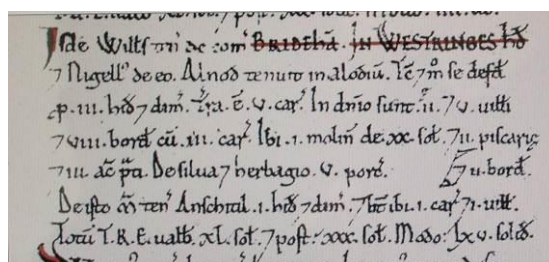 Isdē Wills ten̄ de com̄ BRIDEHĀ. IN WESTRINGES HD̄
7 Nigell' de eo. Alnod tenuit in alodiū. Tc̄ 7 m̊ se defđ
p. iii. hiđ 7 dim̄. Tr̄a. ē. v. car'. In dn̄io sunt. ii. 7 v. uilłi
7 viii. borđ cū. iii. car'. Ibi. i. molin̄ de. xx. soł. 7 ii. piscarię
7 iii. ac̄ p̄ti. De silua 7 herbagio. v. porc'. 7 ii. borđ.
De isto m̄ ten' Anschitil. i. hiđ 7 dim̄. 7 ht̄ ibi. i. car' 7 i. uilł.
Totū T.R.E. ualb̄. xl. soł. 7 post: xxx. soł. Modo: lxv. soliđ.